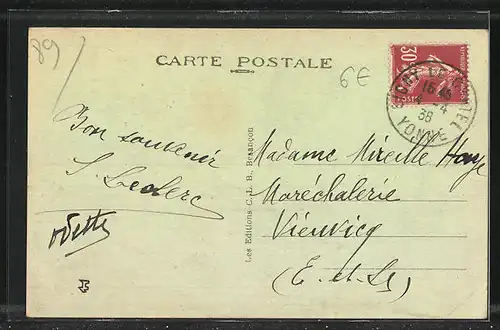 89
CARTE POSTALE
6€
30c
16 45
4
38
YONNE
Bon souvenir
S. Leclerc
Odette
Les Editions C. L. B. Besançon
Madame Mireille
Maréchalerie
Viévvicq
(E. et L.)